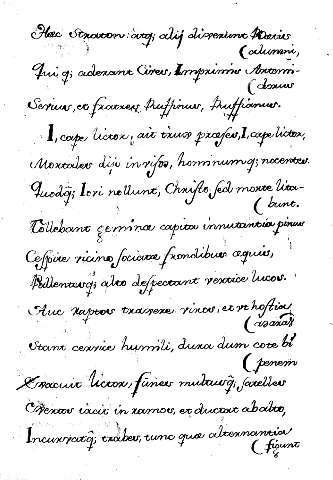 Hæc Straton: atq; alij dixerunt Martis
(alumni,
Qui q; aderant Cives, Imprimis Antoni-
(dorus
Servius, et fratres Ruffinus, Ruffianus.
I, cape lictor, ait trux præses, I, cape lictor,
Mortales dijs invisos, hominumq; nocentes.
Quodq; Iovi nollunt, Christo sed morte lita-
(bunt.
Tollebant geminæ capita innutantia pinus
Cespite vicino sociatæ frondibus æquis,
Pallentesq; alto despectant vertice lucos.
Huc raptos traxere viros, et vt hostia
Stant cervice humili, dura dum cote bi
(penem
Exacuit lictor, funes multusq; satelles
Certos iacit in ramos, et ductat ab alto,
Incurvatq; trabes, tunc quæ alternantia
(figunt